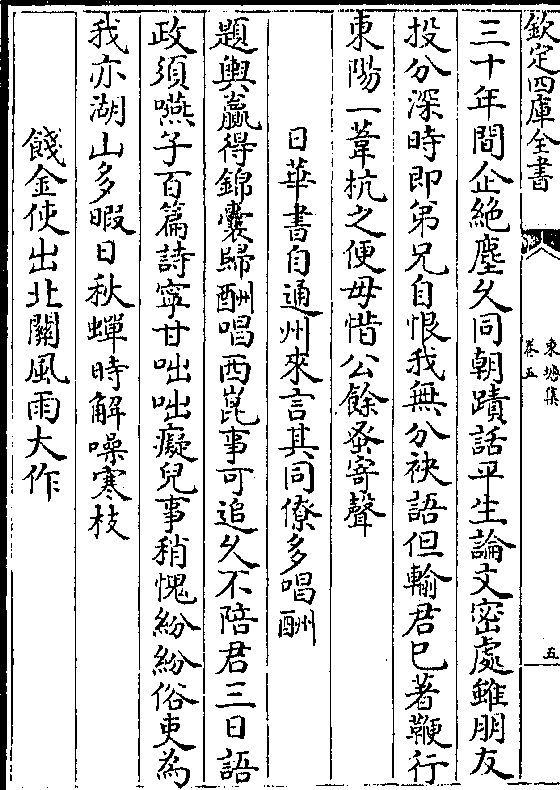 欽定四庫全書
東塘集
卷五
五
三十年間企絶塵久同朝蹟話平生論文密處雖朋友
投分深時即弟兄自恨我無分袂語但輸君已著鞭行
東陽一葦杭之便毋惜公餘蚤寄聲
日華書自通州來言其同僚多唱酬
題輿贏得錦囊歸酬唱西崑事可追久不陪君三日語
政須嚥子百篇詩寧甘咄咄癡兒事稍愧紛紛俗吏為
我亦湖山多暇日秋蟬時解噪寒枝
餞金使出北關風雨大作